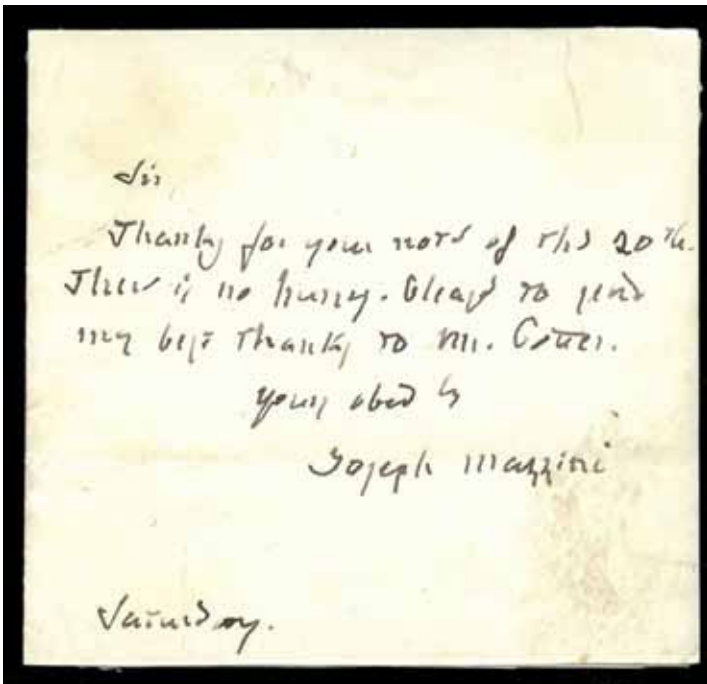 Sir
Thanks for your note of the 20th.
There is no hurry. Please to send
my best thanks to Mr.
yours obed
Joseph Mazzini
Saturday.